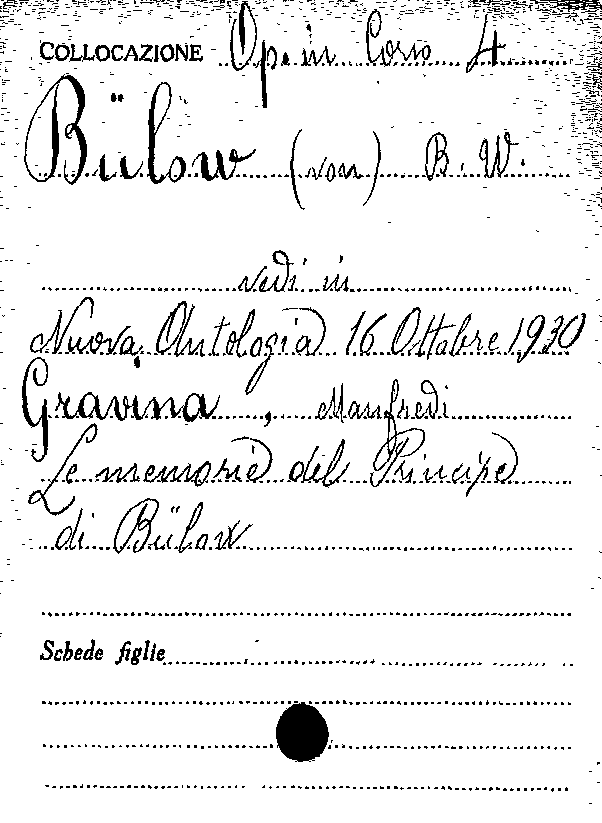 COLLOCAZIONE Op. in Corso 4
Bülow (von) B. W.
vedi in
Nuova Antologia 16 Ottobre 1930
Gravina, Manfredi
Le memorie del Principe
di Bülow
Schede figlie